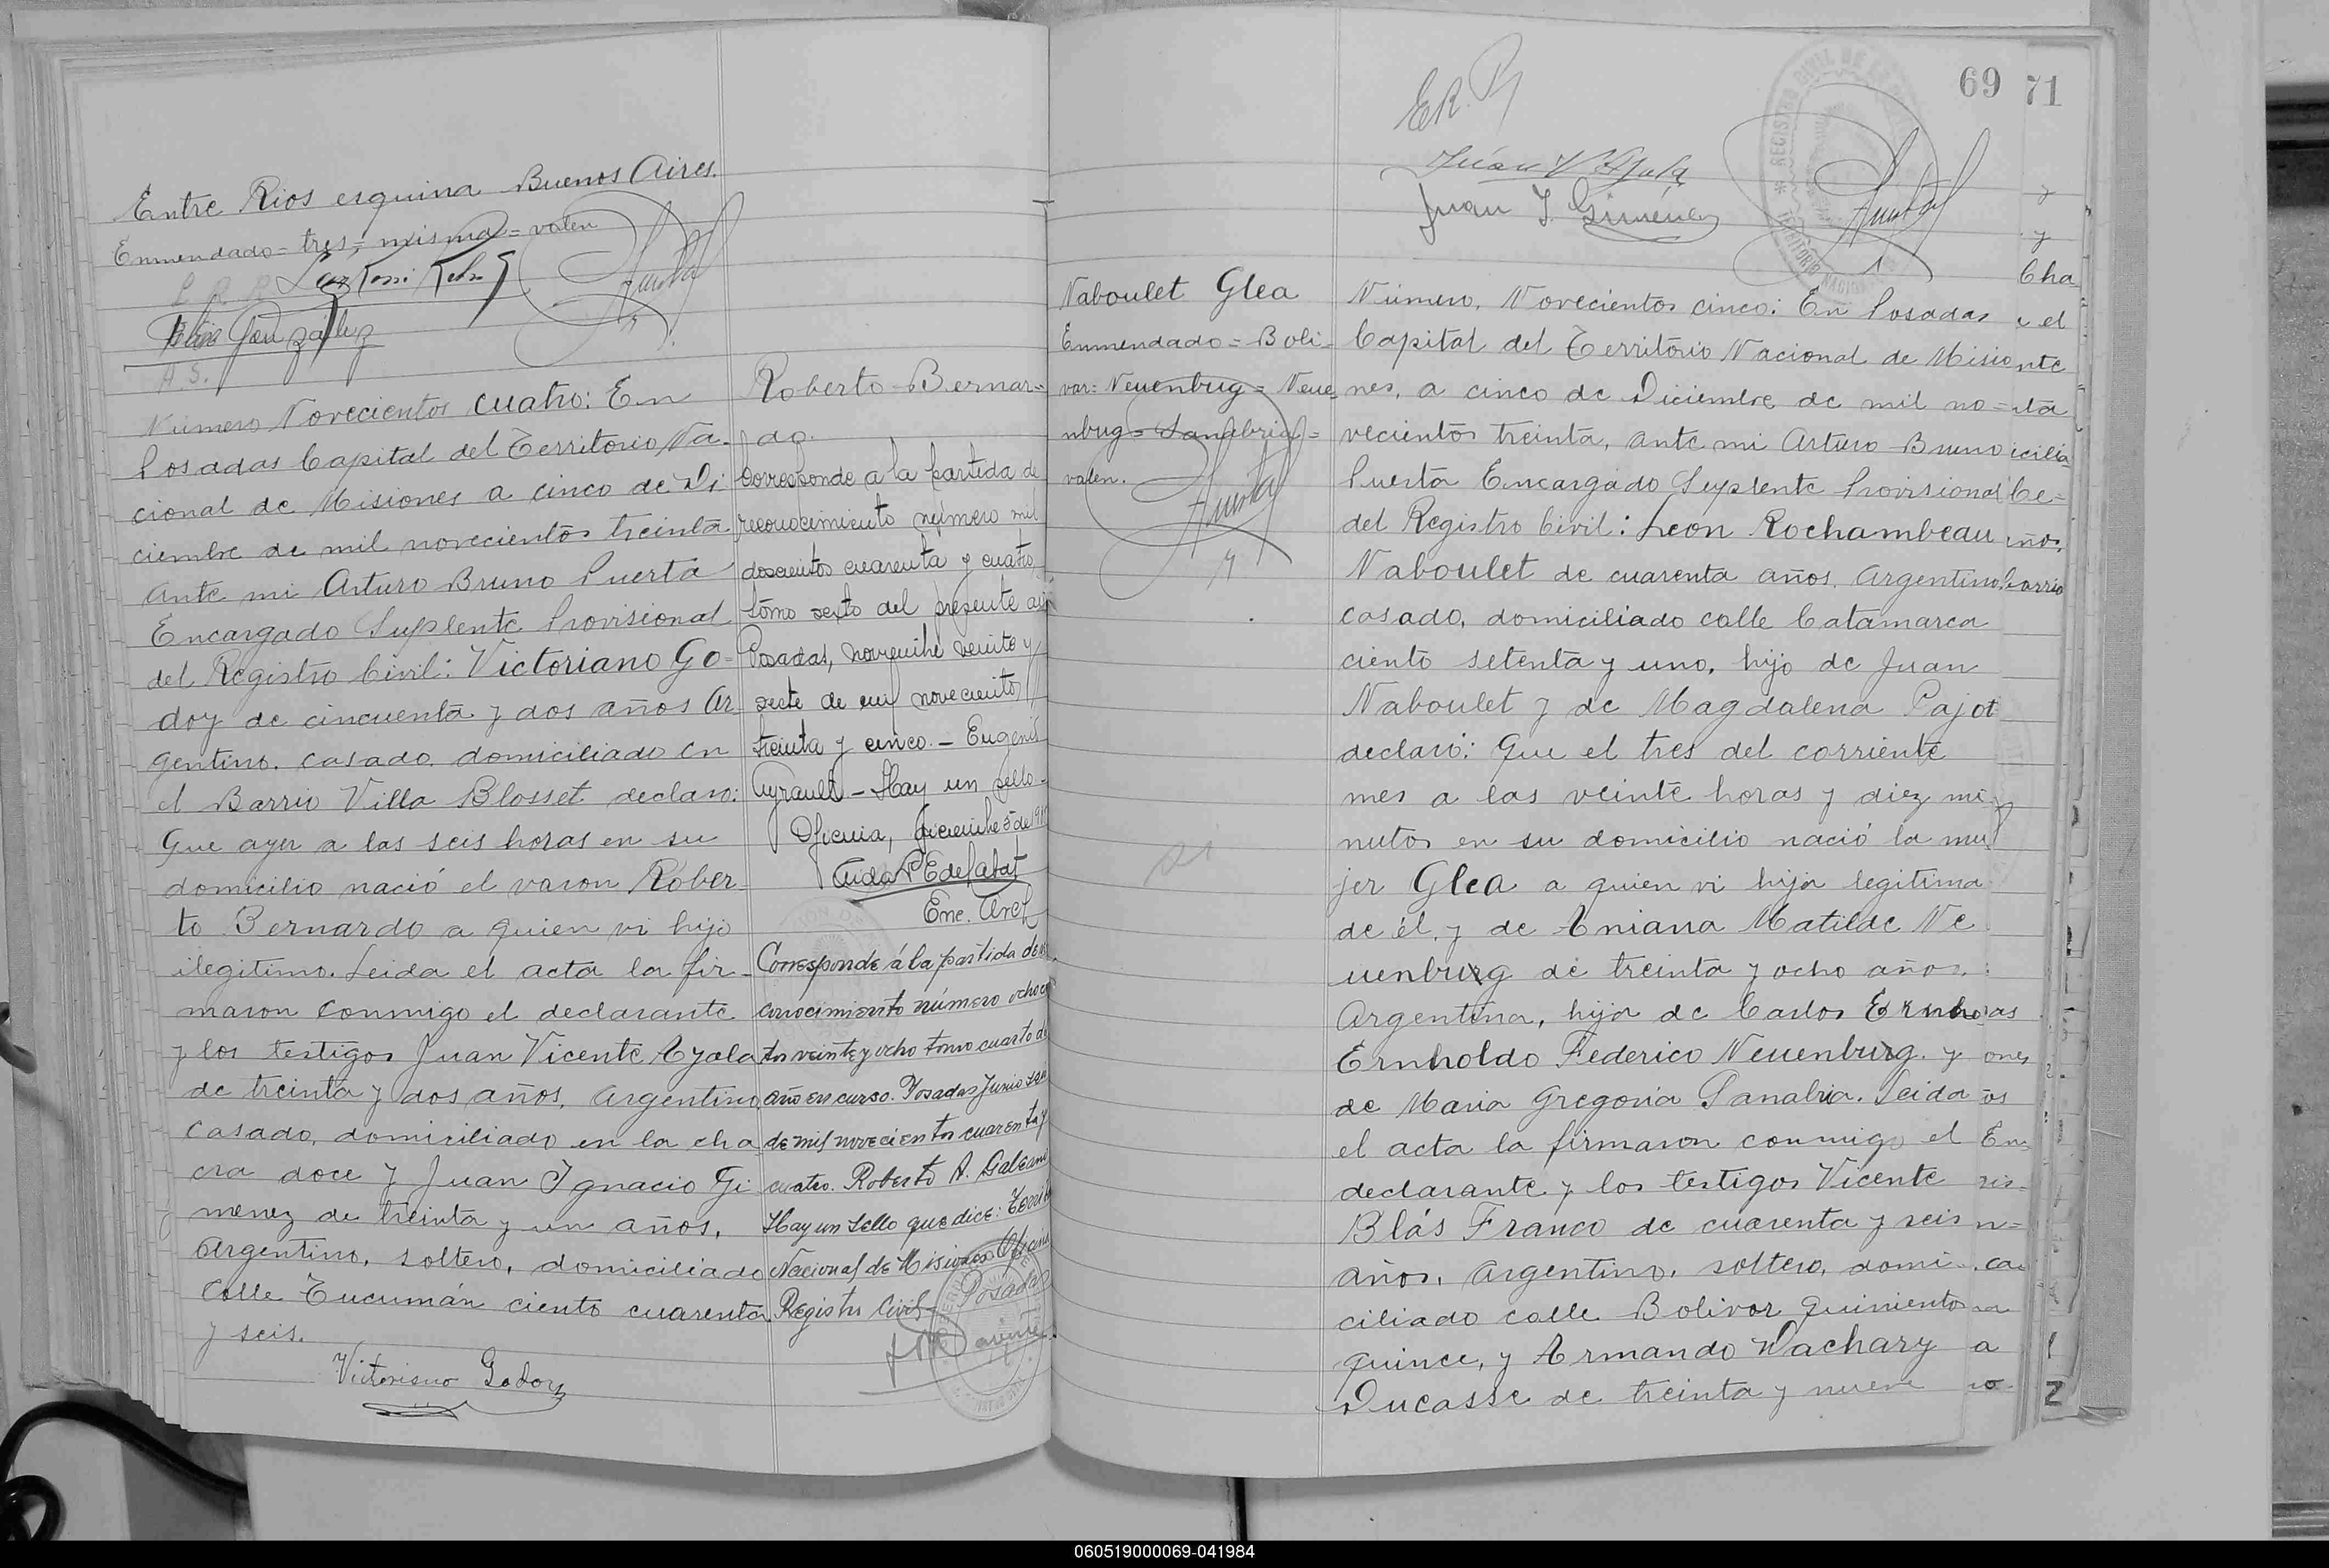 Entre Rios esquina Buenos Aires.
Enmendado = tres = misma = valen
Blas Gonzalez
Número Novecientos cuatro: En
Posadas Capital del Territorio Na-
cional de Misiones a cinco de Di-
ciembre de mil novecientos treinta
ante mi Arturo Bruno Puerta
Encargado Suplente Provisional
del Registro Civil: Victoriano Go=
doy de cincuenta y dos años Ar-
gentino, casado, domiciliado en
el Barrio Villa Blosset declaro:
Que ayer a las seis horas en su
domicilio nació el varon Rober-
to Bernardo a quien vi hijo
ilegitimo. Leida el acta la fir-
maron conmigo el declarante
y los testigos Juan Vicente Ayala
de treinta y dos años, Argentino,
casado, domiciliado en la cha
cra doce y Juan Ignacio Gi
menez de treinta y un años,
Argentino, soltero, domiciliado
Calle Tucumán ciento cuarenta
y seis.
Victoriano Godoy
Roberto Bernar=
do.
Corresponde a la partida de
reconocimiento número mil
doscientos cuarenta y cuatro
tomo sexto del presente año
Posadas, noviembre veinte y
siete de mil novecientos
treinta y cinco. - Eugenio
- Hay un sello-
Oficina, diciembre 5 de
Enc. Arch
Corresponde á la partida de re
conocimiento número ochocien
tos veinte y ocho tomo cuarto del
año en curso. Posadas Junio
de mil novecientos cuarenta y
cuatro. Roberto A. Galeano
Hay un sello que dice: Territ
Nacional de Misiones Oficina
Registro Civil - Posadas
69 71
E.R.P.
Juan V Ayala
Juan I. Gimenez
Naboulet Glea
Enmendado = Boli=
var: Neuenbug = Neue
nbug = Sanabria =
valen.
Número, Novecientos cinco: En Posadas
Capital del Territorio Nacional de Misio
nes, a cinco de Diciembre de mil no=
vecientos treinta, ante mi Arturo Bruno
Puerta Encargado Suplente Provisional
del Registro Civil: Leon Rochambeau
Naboulet de cuarenta años, Argentino,
casado, domiciliado calle Catamarca
ciento setenta y uno, hijo de Juan
Naboulet y de Magdalena Pajot
declaró: Que el tres del corriente
mes a las veinte horas y diez mi-
nutos en su domicilio nació la mu
jer Glea a quien vi hija legitima
de él, y de Aniana Matilde Ne
uenburg de treinta y ocho años,
Argentina, hija de Carlos
Ernholdo Federico Neuenburg y
de Maria Gregoria Sanabria. Leida
el acta la firmaron conmigo el
declarante y los testigos Vicente
Blás Franco de cuarenta y seis
años, Argentino, soltero, domi-
ciliado calle Bolivar quinientos
quince, y Armando Wachary
Ducasse de treinta y nueve
Cha
y el
barrio
Z
060519000069-041984